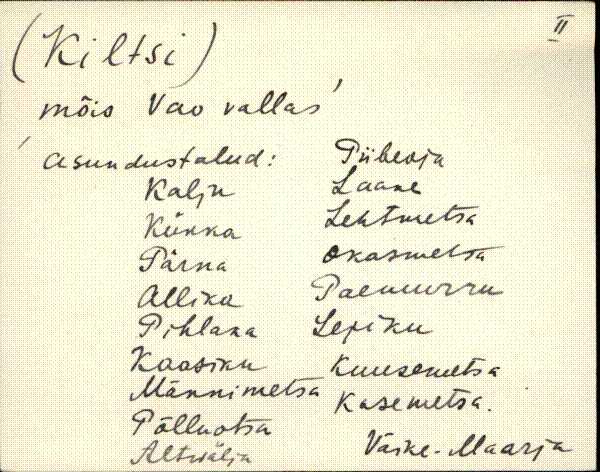 II
(Kiltsi)
mõis Vao vallas
asundustalud:
Kalju
Künka
Pärna
Allika
Pihlaka
Kaasiku
Männimetsa
Põlluotsa
Altvälja
Piibeoja
Laane
Lehtmetsa
Okasmetsa
Paemurru
Lepiku
Kuusemetsa
Kasemetsa.
Väike-Maarja